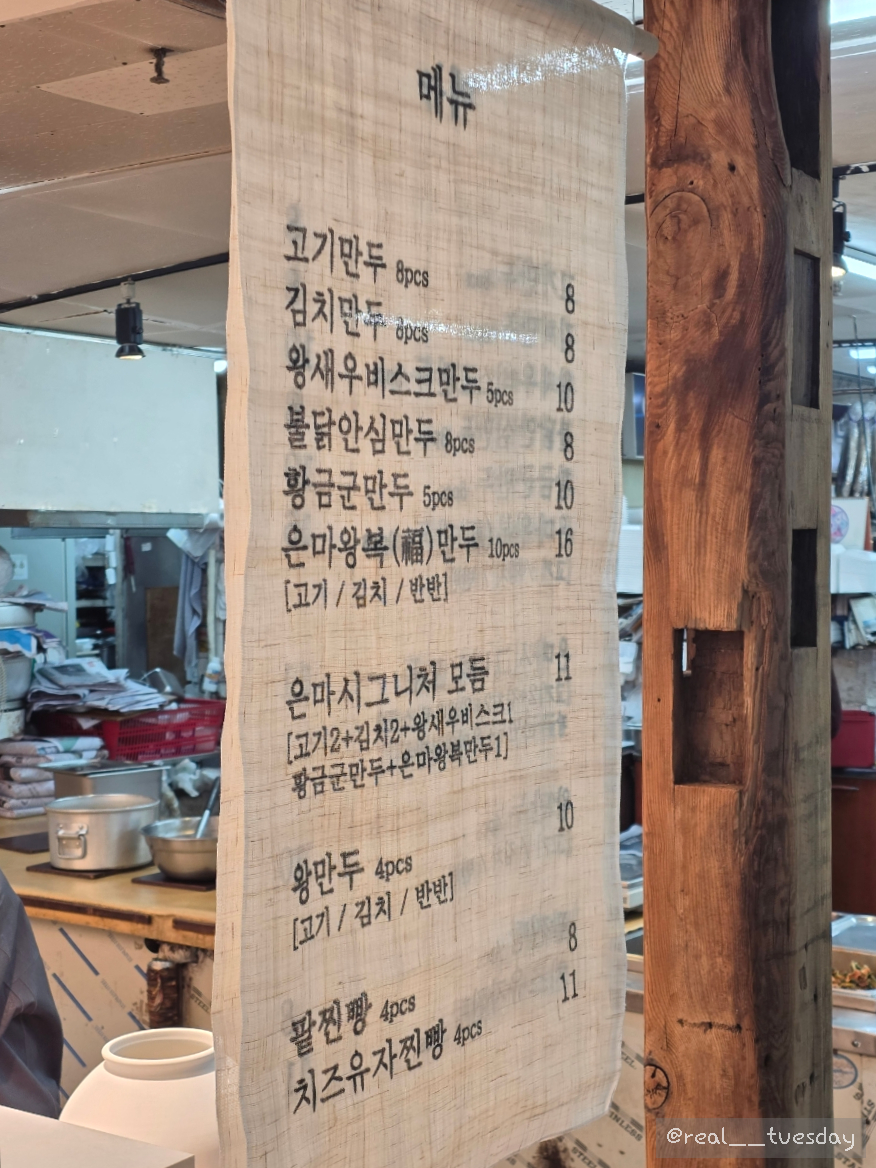 메뉴
고기만두 8pcs 8
김치만두 8pcs 8
왕새우비스크만두 5pcs 10
불닭안심만두 8pcs 8
황금군만두 5pcs 10
은마왕복(福)만두 10pcs 16
[고기 / 김치 / 반반]
은마시그니처 모듬 11
[고기2+김치2+왕새우비스크1
황금군만두+은마왕복만두1]
왕만두 4pcs 10
[고기 / 김치 / 반반]
팥찐빵 4pcs 8
치즈유자찐빵 4pcs 11
@real__tuesday